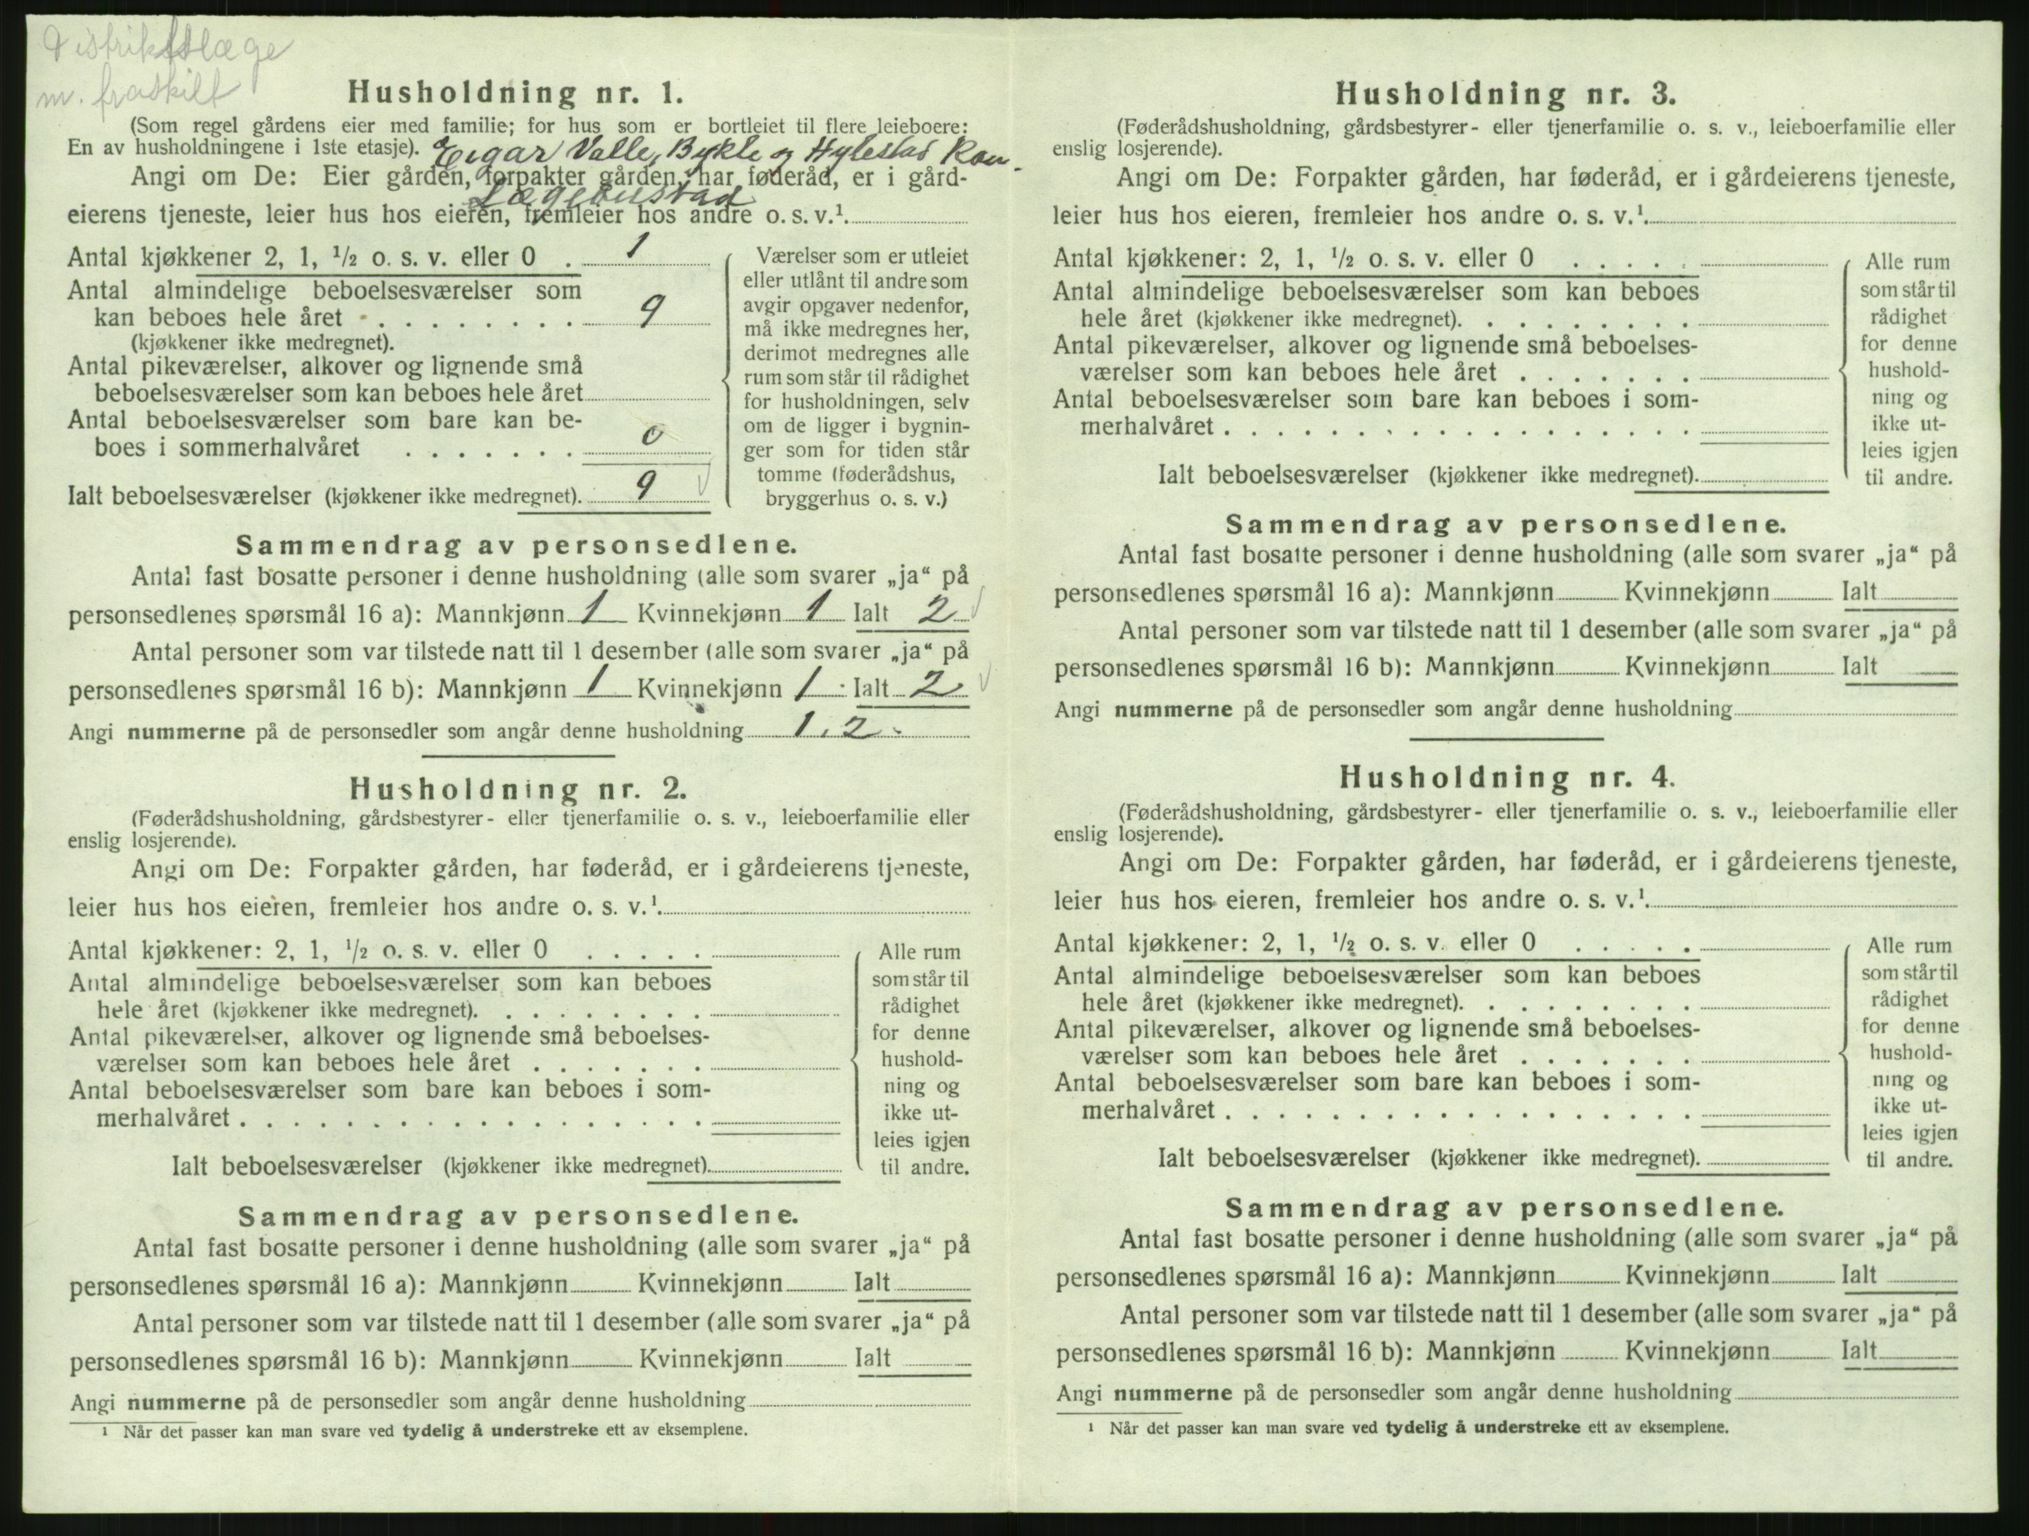 Distriktslæge
m. fraskilt
Husholdning nr. 1.
(Som regel gårdens eier med familie; for hus som er bortleiet til flere leieboere:
En av husholdningene i 1ste etasje). Eigar Valle, Bykle og Hylestad Kom.
Angi om De: Eier gården, forpakter gården, har føderåd, er i gård-
Lægebustad
eierens tjeneste, leier hus hos eieren, fremleier hos andre o. s. v.¹.
Antal kjøkkener 2, 1, ½ o. s. v. eller 0 . 1
Antal almindelige beboelsesværelser som
kan beboes hele året . . . . . . . . 9
(kjøkkener ikke medregnet).
Antal pikeværelser, alkover og lignende små
beboelsesværelser som kan beboes hele året
Antal beboelsesværelser som bare kan be-
boes i sommerhalvåret . . . . . . . 0
Ialt beboelsesværelser (kjøkkener ikke medregnet). 9 √
Værelser som er utleiet
eller utlånt til andre som
avgir opgaver nedenfor,
må ikke medregnes her,
derimot medregnes alle
rum som står til rådighet
for husholdningen, selv
om de ligger i bygnin-
ger som for tiden står
tomme (føderådshus,
bryggerhus o. s. v.)
Sammendrag av personsedlene.
Antal fast bosatte personer i denne husholdning (alle som svarer „ja“ på
personsedlenes spørsmål 16 a): Mannkjønn 1 Kvinnekjønn 1 Ialt 2 √
Antal personer som var tilstede natt til 1 desember (alle som svarer „ja“ på
personsedlenes spørsmål 16 b): Mannkjønn 1 Kvinnekjønn 1 Ialt 2 √
Angi nummerne på de personsedler som angår denne husholdning 1, 2.
Husholdning nr. 2.
(Føderådshusholdning, gårdsbestyrer- eller tjenerfamilie o. s. v., leieboerfamilie eller
enslig losjerende).
Angi om De: Forpakter gården, har føderåd, er i gårdeierens tjeneste,
leier hus hos eieren, fremleier hos andre o. s. v.¹.
Antal kjøkkener: 2, 1, ½ o. s. v. eller 0 . . . . .
Antal almindelige beboelsesværelser som kan beboes
hele året (kjøkkener ikke medregnet). . . . . . . . .
Antal pikeværelser, alkover og lignende små beboelses-
værelser som kan beboes hele året . . . . . . .
Antal beboelsesværelser som bare kan beboes i som-
merhalvåret . . . . . . . . . . . . . . . . . .
Ialt beboelsesværelser (kjøkkener ikke medregnet).
Alle rum
som står til
rådighet
for denne
hushold-
ning og
ikke ut-
leies igjen
til andre.
Sammendrag av personsedlene.
Antal fast bosatte personer i denne husholdning (alle som svarer „ja“ på
personsedlenes spørsmål 16 a): Mannkjønn Kvinnekjønn Ialt
Antal personer som var tilstede natt til 1 desember (alle som svarer „ja“ på
personsedlenes spørsmål 16 b): Mannkjønn Kvinnekjønn Ialt
Angi nummerne på de personsedler som angår denne husholdning
¹ Når det passer kan man svare ved tydelig å understreke ett av eksemplene.
Husholdning nr. 3.
(Føderådshusholdning, gårdsbestyrer- eller tjenerfamilie o. s. v., leieboerfamilie eller
enslig losjerende).
Angi om De: Forpakter gården, har føderåd, er i gårdeierens tjeneste,
leier hus hos eieren, fremleier hos andre o. s. v.¹.
Antal kjøkkener: 2, 1, ½ o. s. v. eller 0 . . . . .
Antal almindelige beboelsesværelser som kan beboes
hele året (kjøkkener ikke medregnet). . . . . . . . .
Antal pikeværelser, alkover og lignende små beboelses-
værelser som kan beboes hele året . . . . . . .
Antal beboelsesværelser som bare kan beboes i som-
merhalvåret . . . . . . . . . . . . . . . . . .
Ialt beboelsesværelser (kjøkkener ikke medregnet).
Alle rum
som står til
rådighet
for denne
hushold-
ning og
ikke ut-
leies igjen
til andre.
Sammendrag av personsedlene.
Antal fast bosatte personer i denne husholdning (alle som svarer „ja“ på
personsedlenes spørsmål 16 a): Mannkjønn Kvinnekjønn Ialt
Antal personer som var tilstede natt til 1 desember (alle som svarer „ja“ på
personsedlenes spørsmål 16 b): Mannkjønn Kvinnekjønn Ialt
Angi nummerne på de personsedler som angår denne husholdning
Husholdning nr. 4.
(Føderådshusholdning, gårdsbestyrer- eller tjenerfamilie o. s. v., leieboerfamilie eller
enslig losjerende).
Angi om De: Forpakter gården, har føderåd, er i gårdeierens tjeneste,
leier hus hos eieren, fremleier hos andre o. s. v.¹.
Antal kjøkkener: 2, 1, ½ o. s. v. eller 0 . . . . .
Antal almindelige beboelsesværelser som kan beboes
hele året (kjøkkener ikke medregnet). . . . . . . . .
Antal pikeværelser, alkover og lignende små beboelses-
værelser som kan beboes hele året . . . . . . .
Antal beboelsesværelser som bare kan beboes i som-
merhalvåret . . . . . . . . . . . . . . . . . .
Ialt beboelsesværelser (kjøkkener ikke medregnet).
Alle rum
som står til
rådighet
for denne
hushold-
ning og
ikke ut-
leies igjen
til andre.
Sammendrag av personsedlene.
Antal fast bosatte personer i denne husholdning (alle som svarer „ja“ på
personsedlenes spørsmål 16 a): Mannkjønn Kvinnekjønn Ialt
Antal personer som var tilstede natt til 1 desember (alle som svarer „ja“ på
personsedlenes spørsmål 16 b): Mannkjønn Kvinnekjønn Ialt
Angi nummerne på de personsedler som angår denne husholdning
¹ Når det passer kan man svare ved tydelig å understreke ett av eksemplene.